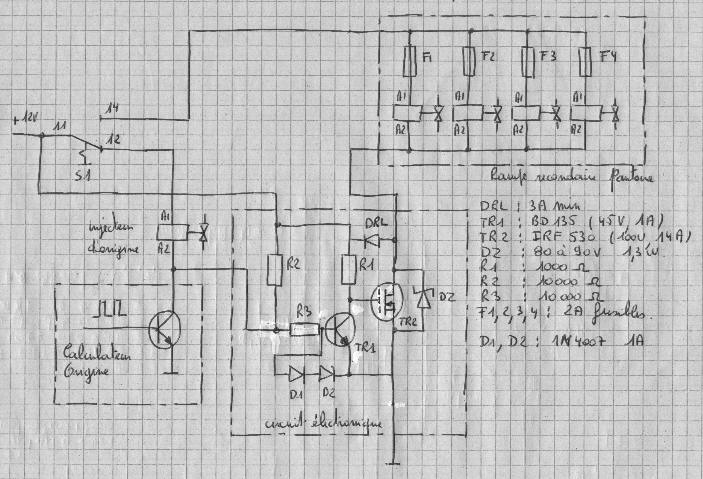 F1 F2 F3 F4
14
+12V 11 12
A1 A1 A1 A1
A2 A2 A2 A2
S1
Rampe secondaire Pantone
injecteur
d'origine
A1
A2
DRL
R2 R1
R3
TR1
TR2
DZ
D1 D2
Calculateur
Origine
circuit électronique
DRL : 3A min
TR1 : BD 135 (45V, 1A)
TR2 : IRF 530 (100V 14A)
DZ : 80 à 90V 1,3W
R1 : 1000 Ω
R2 : 10000 Ω
R3 : 10000 Ω
F1,2,3,4 : 2A fusibles.
D1, D2 : 1N4007 1A